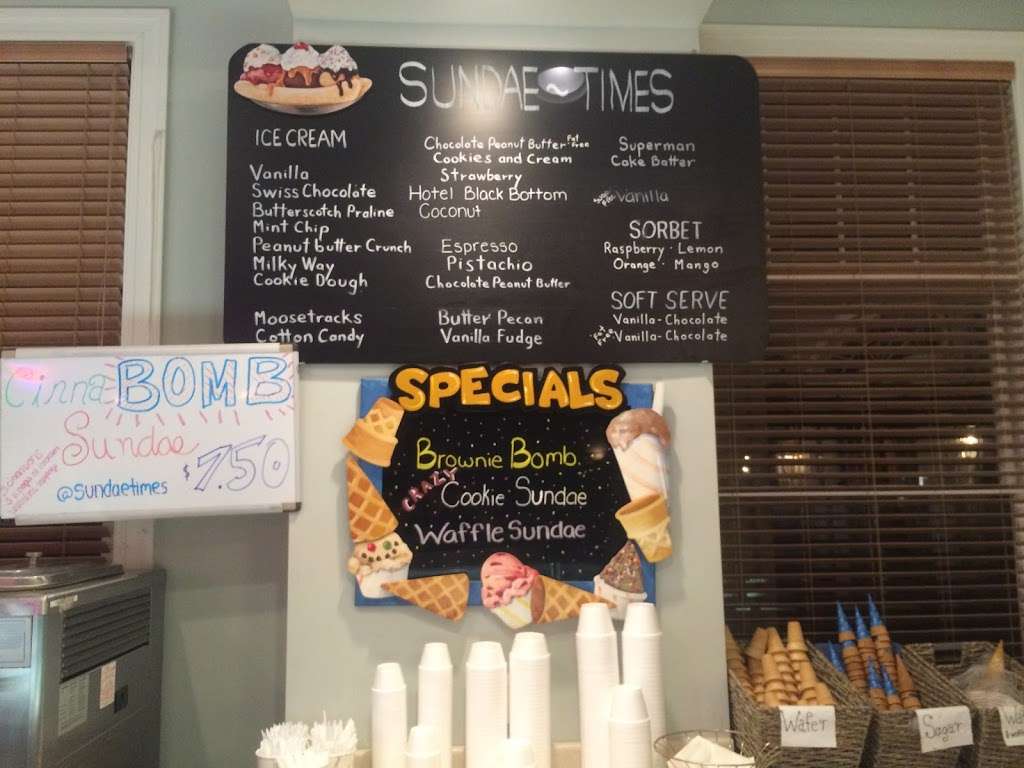 SUNDAE ~ TIMES
ICE CREAM
Vanilla
Swiss Chocolate
Butterscotch Praline
Mint Chip
Peanut butter Crunch
Milky Way
Cookie Dough
Moosetracks
Cotton Candy
Chocolate Peanut Butter Fat Free
Cookies and Cream
Strawberry
Hotel Black Bottom
Coconut
Espresso
Pistachio
Chocolate Peanut Butter
Butter Pecan
Vanilla Fudge
Superman
Cake Batter
Vanilla
SORBET
Raspberry · Lemon
Orange · Mango
SOFT SERVE
Vanilla - Chocolate
Fat Free Vanilla - Chocolate
Cinna BOMB
Sundae
$7.50
@sundaetimes
SPECIALS
Brownie Bomb.
CRAZY Cookie Sundae
Waffle Sundae
Wafer
Sugar